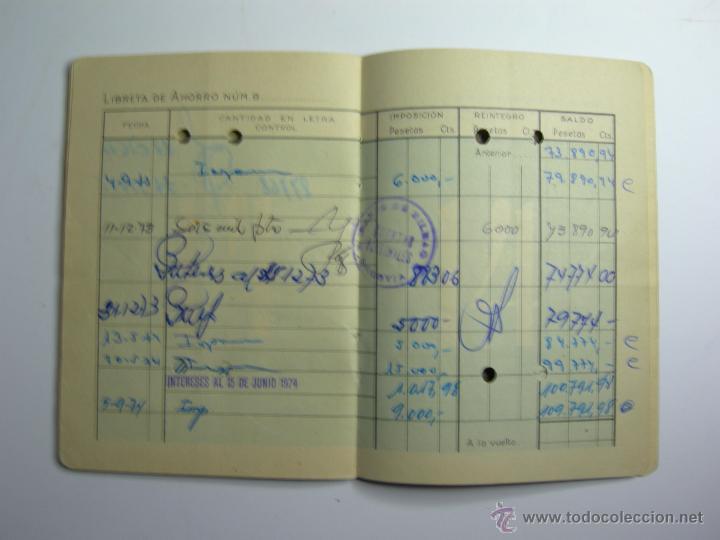 LIBRETA DE AHORRO NÚM. 8
FECHA CANTIDAD EN LETRA CONTROL IMPOSICIÓN Pesetas Cts. REINTEGRO Pesetas Cts. SALDO Pesetas Cts.
Anterior... 73.890,94
6.000,- 79.890,94 C
11-12-73 Seis mil pts 6000 73890 94
BANCO DE BILBAO
Intereses al 31 1273 883 06 74774 00
311273 5000- 79.774-
13.5.74 5.000,- 84.774,- C
15.000,- 99.774,- C
INTERESES AL 15 DE JUNIO 1974 1.017,98 100.791,98
5-9-74 Imp 9.000,- 109.791,98
A la vuelta.
www.todocoleccion.net